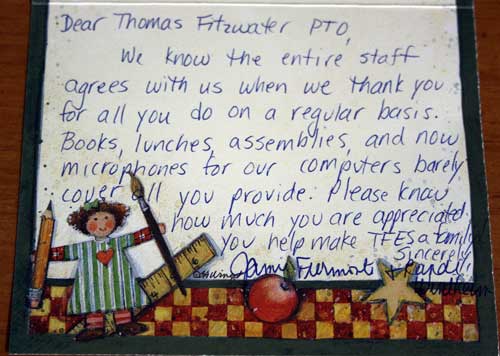 Dear Thomas Fitzwater PTO,
We know the entire staff
agrees with us when we thank you
for all you do on a regular basis.
Books, lunches, assemblies, and now
microphones for our computers barely
cover all you provide. Please know
how much you are appreciated.
You help make TFES a family!
Sincerely,